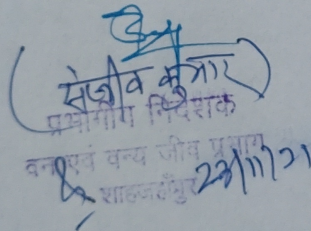 (संजीव कुमार)
प्रभागीय निदेशक
वन एवं वन्य जीव प्रभाग
शाहजहाँपुर 23/11/21